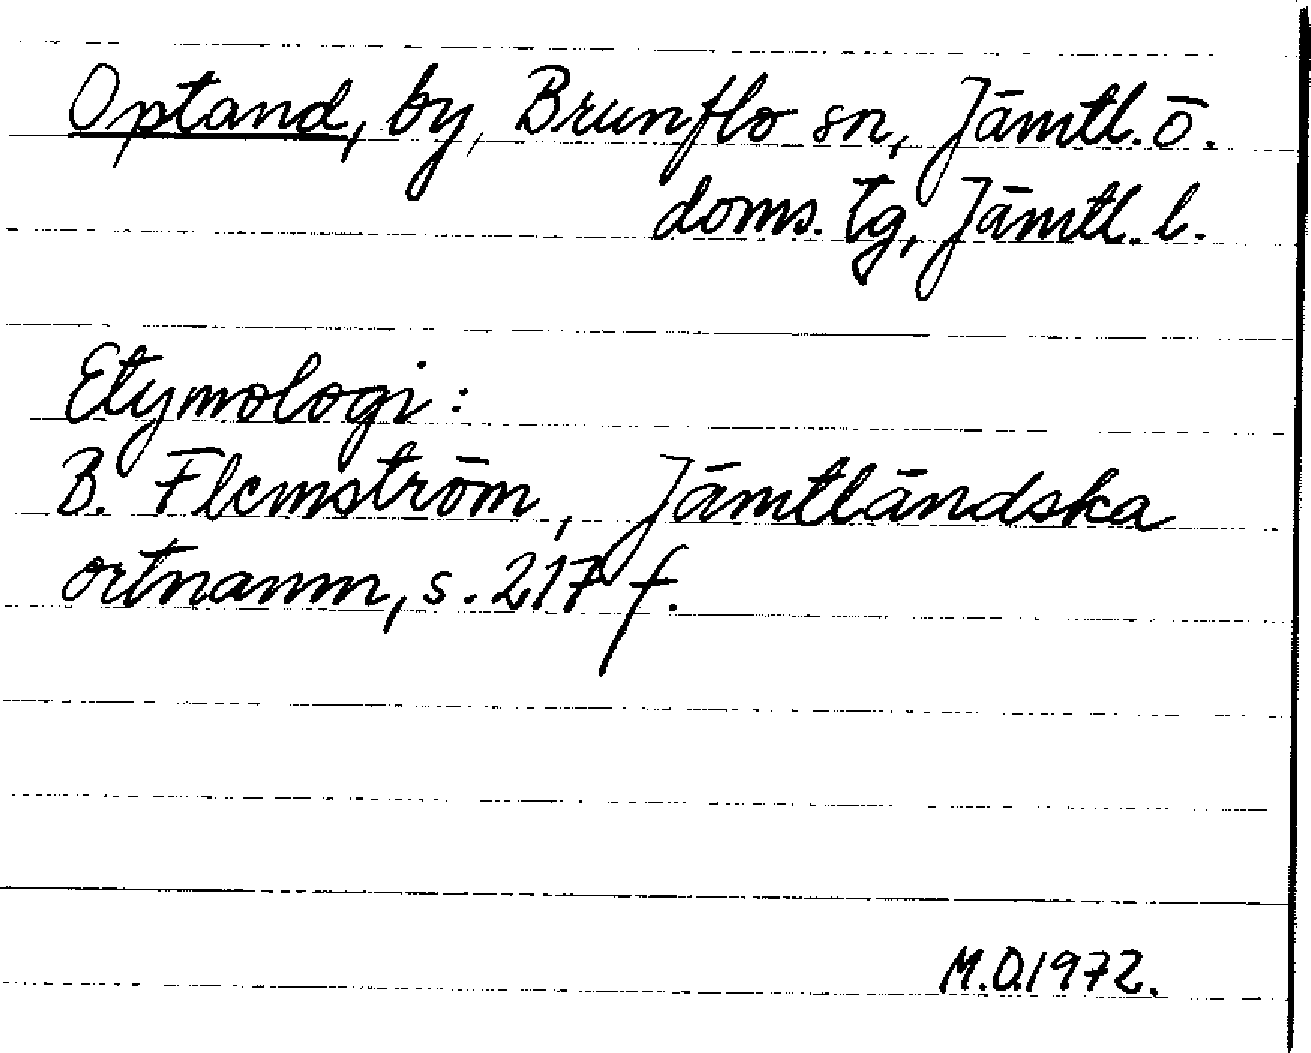 Optand, by, Brunflo sn, Jämtl. ö.
doms. tg, Jämtl. l.
Etymologi:
B. Flemström, Jämtländska
ortnamn, s. 217 f.
M.O.1972.